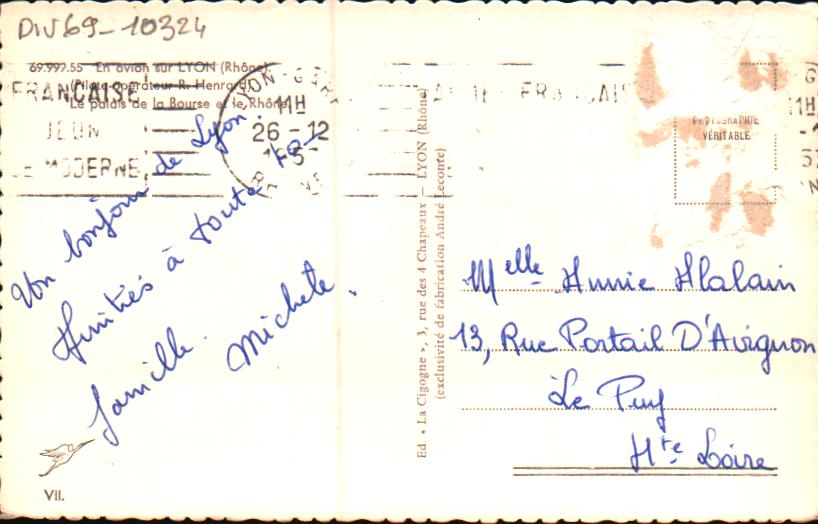 DIV69-10324
69.999.55 En avion sur LYON (Rhône).
(Pilote-opérateur R. Henrard)
Le palais de la Bourse et le Rhône
FRANÇAISE
JEUNE
MODERNE
LYON-GARE
11H
26-12
Un bonjour de Lyon.
Amitiés à toute ta
famille.
Michele.
VII.
Ed « La Cigogne », 3, rue des 4 Chapeaux — LYON (Rhône)
(exclusivité de fabrication André Leconte)
PHOTOGRAPHIE
VÉRITABLE
11H
Melle Annie Alalain
13, Rue Portail D'Avignon
Le Puy
Hte Loire